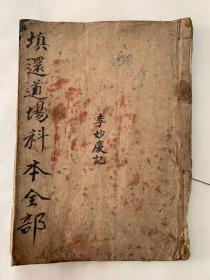 填還道場科本全部
李妙慶記